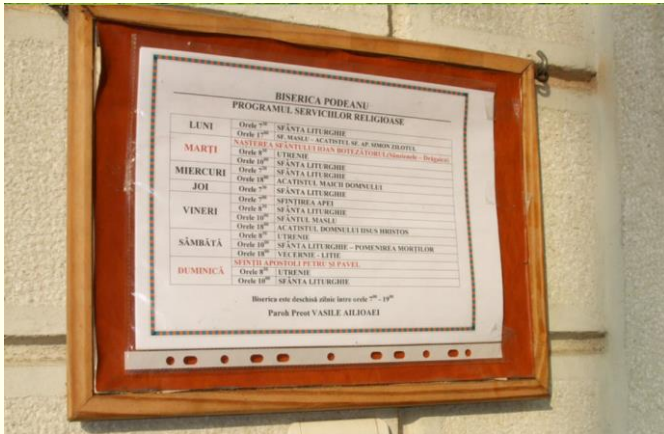 BISERICA PODEANU
PROGRAMUL SERVICIILOR RELIGIOASE
LUNI Orele 7⁰⁰ SFÂNTA LITURGHIE
Orele 17⁰⁰ SF. MASLU – ACATISTUL SF. AP. SIMON ZILOTUL
MARȚI NAȘTEREA SFÂNTULUI IOAN BOTEZĂTORUL (Sânzienele – Drăgaica)
Orele 8⁰⁰ UTRENIE
Orele 10⁰⁰ SFÂNTA LITURGHIE
MIERCURI Orele 7³⁰ SFÂNTA LITURGHIE
Orele 18⁰⁰ ACATISTUL MAICII DOMNULUI
JOI Orele 7³⁰ SFÂNTA LITURGHIE
VINERI Orele 7⁰⁰ SFINȚIREA APEI
Orele 8³⁰ SFÂNTA LITURGHIE
Orele 10⁰⁰ SFÂNTUL MASLU
Orele 18⁰⁰ ACATISTUL DOMNULUI IISUS HRISTOS
SÂMBĂTĂ Orele 8³⁰ UTRENIE
Orele 10⁰⁰ SFÂNTA LITURGHIE – POMENIREA MORȚILOR
Orele 18⁰⁰ VECERNIE - LITIE
DUMINICĂ SFINȚII APOSTOLI PETRU ȘI PAVEL
Orele 8⁰⁰ UTRENIE
Orele 10⁰⁰ SFÂNTA LITURGHIE
Biserica este deschisă zilnic între orele 7⁰⁰ - 19⁰⁰
Paroh Preot VASILE AILIOAEI